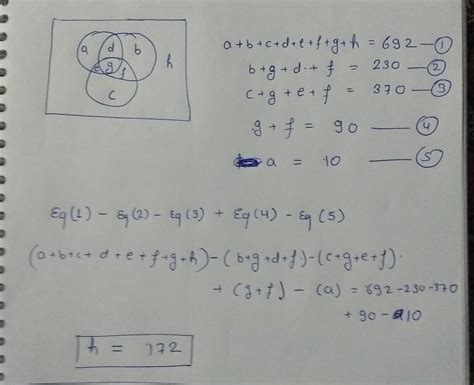 a d b h
e g f
c
a+b+c+d+e+f+g+h = 692 — ①
b+g+d+f = 230 — ②
c+g+e+f = 370 — ③
g+f = 90 — ④
a = 10 — ⑤
Eq(1) - Eq(2) - Eq(3) + Eq(4) - Eq(5)
(a+b+c+d+e+f+g+h) - (b+g+d+f) - (c+g+e+f)
+ (g+f) - (a) = 692-230-370
+ 90 - 10
h = 172